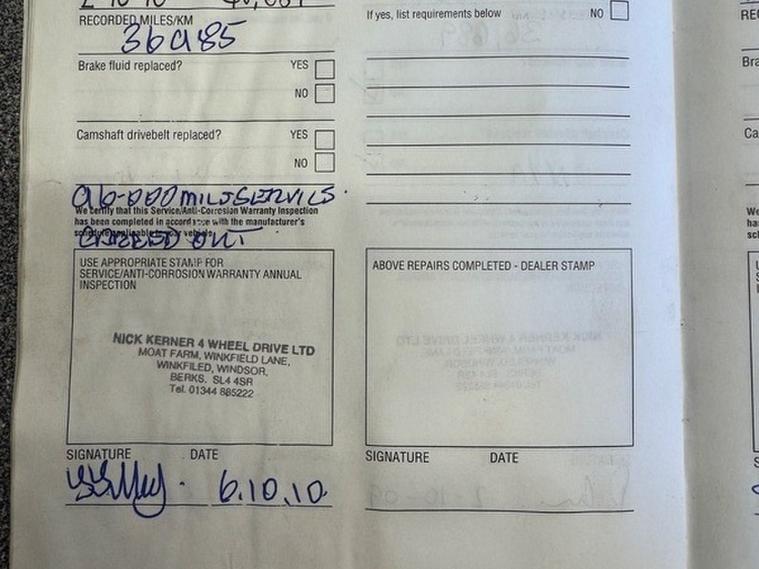 RECORDED MILES/KM
36985
Brake fluid replaced?
YES
NO
Camshaft drivebelt replaced?
YES
NO
96-000 MILE SERVICE.
We certify that this Service/Anti-Corrosion Warranty Inspection
has been completed in accordance with the manufacturer's
schedule applicable to your vehicle.
CARRIED OUT
USE APPROPRIATE STAMP FOR
SERVICE/ANTI-CORROSION WARRANTY ANNUAL
INSPECTION
NICK KERNER 4 WHEEL DRIVE LTD
MOAT FARM, WINKFIELD LANE,
WINKFILED, WINDSOR,
BERKS. SL4 4SR
Tel. 01344 885222
SIGNATURE DATE
6.10.10
If yes, list requirements below
NO
ABOVE REPAIRS COMPLETED - DEALER STAMP
SIGNATURE DATE